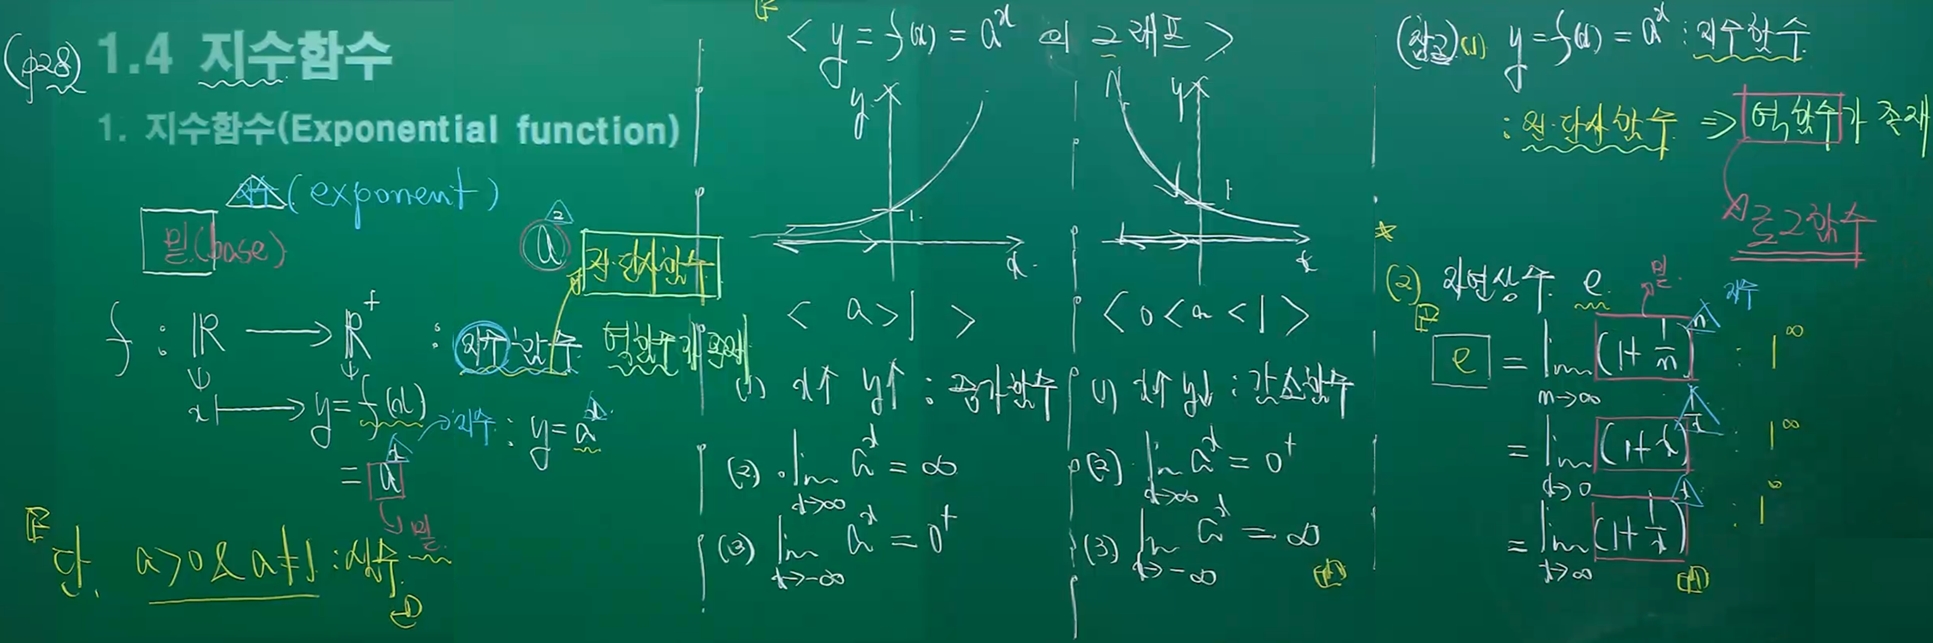 (p28) 1.4 지수함수
1. 지수함수(Exponential function)
지수(exponent)
밑(base)
a²
전·단사함수
f : ℝ → ℝ⁺ : 지수함수 역함수가 존재
x ↦ y = f(x) 지수 : y = aˣ
= aˣ
밑
단, a>0 & a≠1 : 상수
< y = f(x) = aˣ 의 그래프 >
y
1
x
< a>1 >
(1) x↑ y↑ : 증가함수
(2) lim x→∞ aˣ = ∞
(3) lim x→-∞ aˣ = 0⁺
y
1
x
< 0<a<1 >
(1) x↑ y↓ : 감소함수
(2) lim x→∞ aˣ = 0⁺
(3) lim x→-∞ aˣ = ∞
(참고) (1) y = f(x) = aˣ : 지수함수
: 전·단사함수 ⇒ 역함수가 존재
로그함수
(2) 자연상수 e
밑 지수
e = lim n→∞ (1+1/n)ⁿ : 1^∞
= lim x→0 (1+x)^(1/x) : 1^∞
= lim x→∞ (1+1/x)ˣ : 1^∞